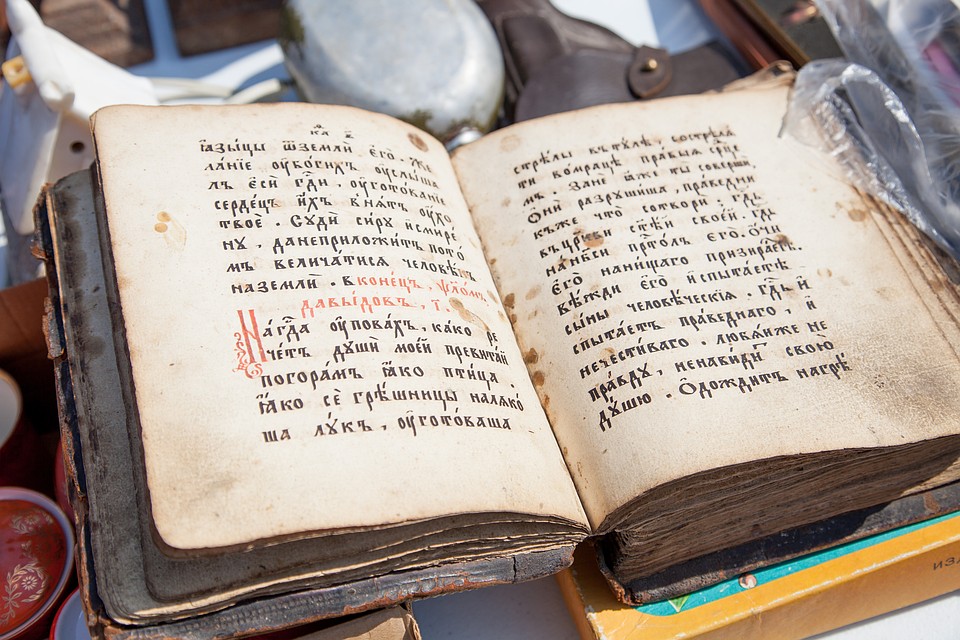 ꙗзы́цы ѿземлѝ є҆гѡ̀. же
ла́нїе ᲂу҆бо́гихъ ᲂу҆слы́ша
лъ є҆сѝ гдⷭ҇и. ᲂу҆гото́ванїе
се́рдецъ и҆́хъ внѧ́тъ ᲂу҆́хо
твоѐ. сꙋдѝ си́рꙋ и҆смире́
нꙋ, данеприложи́тъ пото́
мъ велича́тисѧ человѣ́къ
наземлѝ. вконе́цъ, ѱало́мъ
давы́довъ, і҃.
На́гдⷭ҇а ᲂу҆пова́хъ, ка́ко ре
че́тъ дꙋшѝ мое́й превита́й
погора́мъ ꙗ҆́ко пти́ца.
ꙗ҆́ко сѐ грѣ́шницы налѧко́
ша лꙋ́къ, ᲂу҆гото́ваша
стрѣ́лы въ тꙋ́лѣ, состре́лѧ
ти во мра́цѣ пра́выѧ срⷣце
мъ. Занѐ ꙗ҆̀же ты̀ соверши́,
ѻ҆нѝ разрꙋши́ша, пра́ведни
къ же что̀ сотворѝ. гдⷭ҇ь
въ цр҃кви ст҃ѣ́й свое́й. гдⷭ҇ь
на нб҃сѝ прⷭ҇то́лъ є҆гѡ̀. ѻ҆́чи
є҆гѡ̀ нани́щаго призира́е..
вѣ́жди є҆гѡ̀ и҆спыта́етѣ
сы́ны человѣ́ческїѧ. гдⷭ҇ь и҆
спыта́етъ пра́веднаго, и҆
нечести́ваго. любѧ́иже не
пра́вдꙋ, ненави́дит свою̀
дꙋ́шꙋ. Ѻ҆дожди́тъ нагрѣ̀
ИЗ